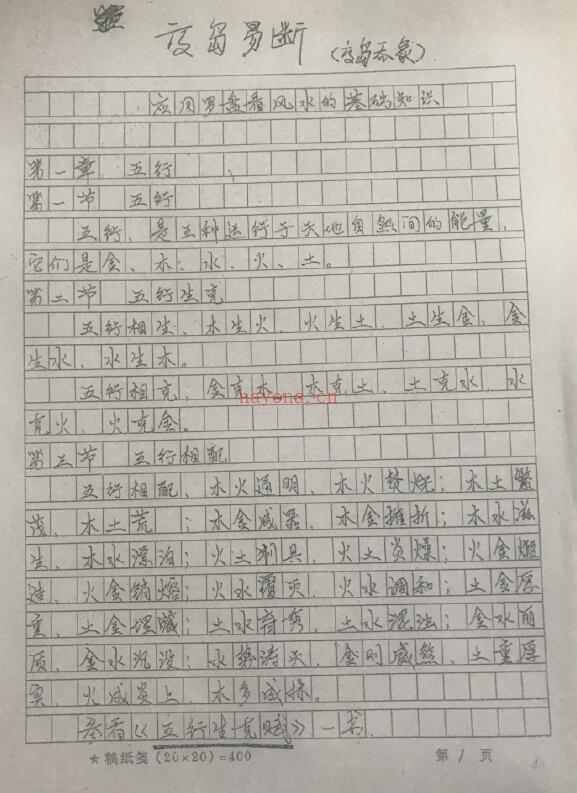 高岛易断（高岛吞象）
应用罗盘看风水的基础知识
第一章 五行
第一节 五行
五行，是五种运行于天地自然间的能量，
它们是金、木、水、火、土。
第二节 五行生克
五行相生，木生火、火生土、土生金、金
生水、水生木。
五行相克，金克木、木克土、土克水、水
克火、火克金。
nayona.cn
第三节 五行相配
五行相配，木火通明、木火焚烧；木土繁
茂、木土荒；木金成器、木金摧折；木水滋
生、木水漂泊；火土制具、火土炎燥；火金煅
造、火金销熔；火水覆灭、火水调和；土金厚
重、土金埋藏；土水育秀、土水混浊；金水丽
质、金水沉没；水势涛天、金刚盛煞、土重厚
实、火成炎上、木多成林。
参看《五行生克赋》一书
★稿纸笺(20×20)=400 第1页